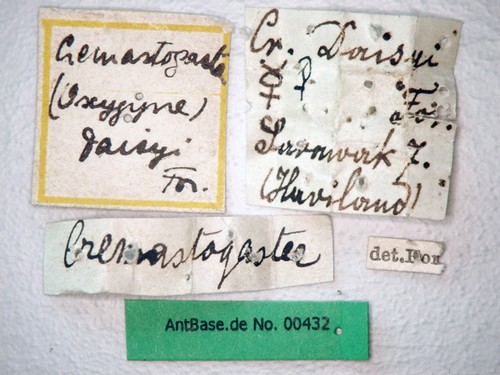 Cremastogaster
(Oxygyne)
daisyi
For.
Cr. Daisyi
☿ ♀ For.
Sarawak 7.
(Haviland)
Cremastogaster
det.For
AntBase.de No. 00432